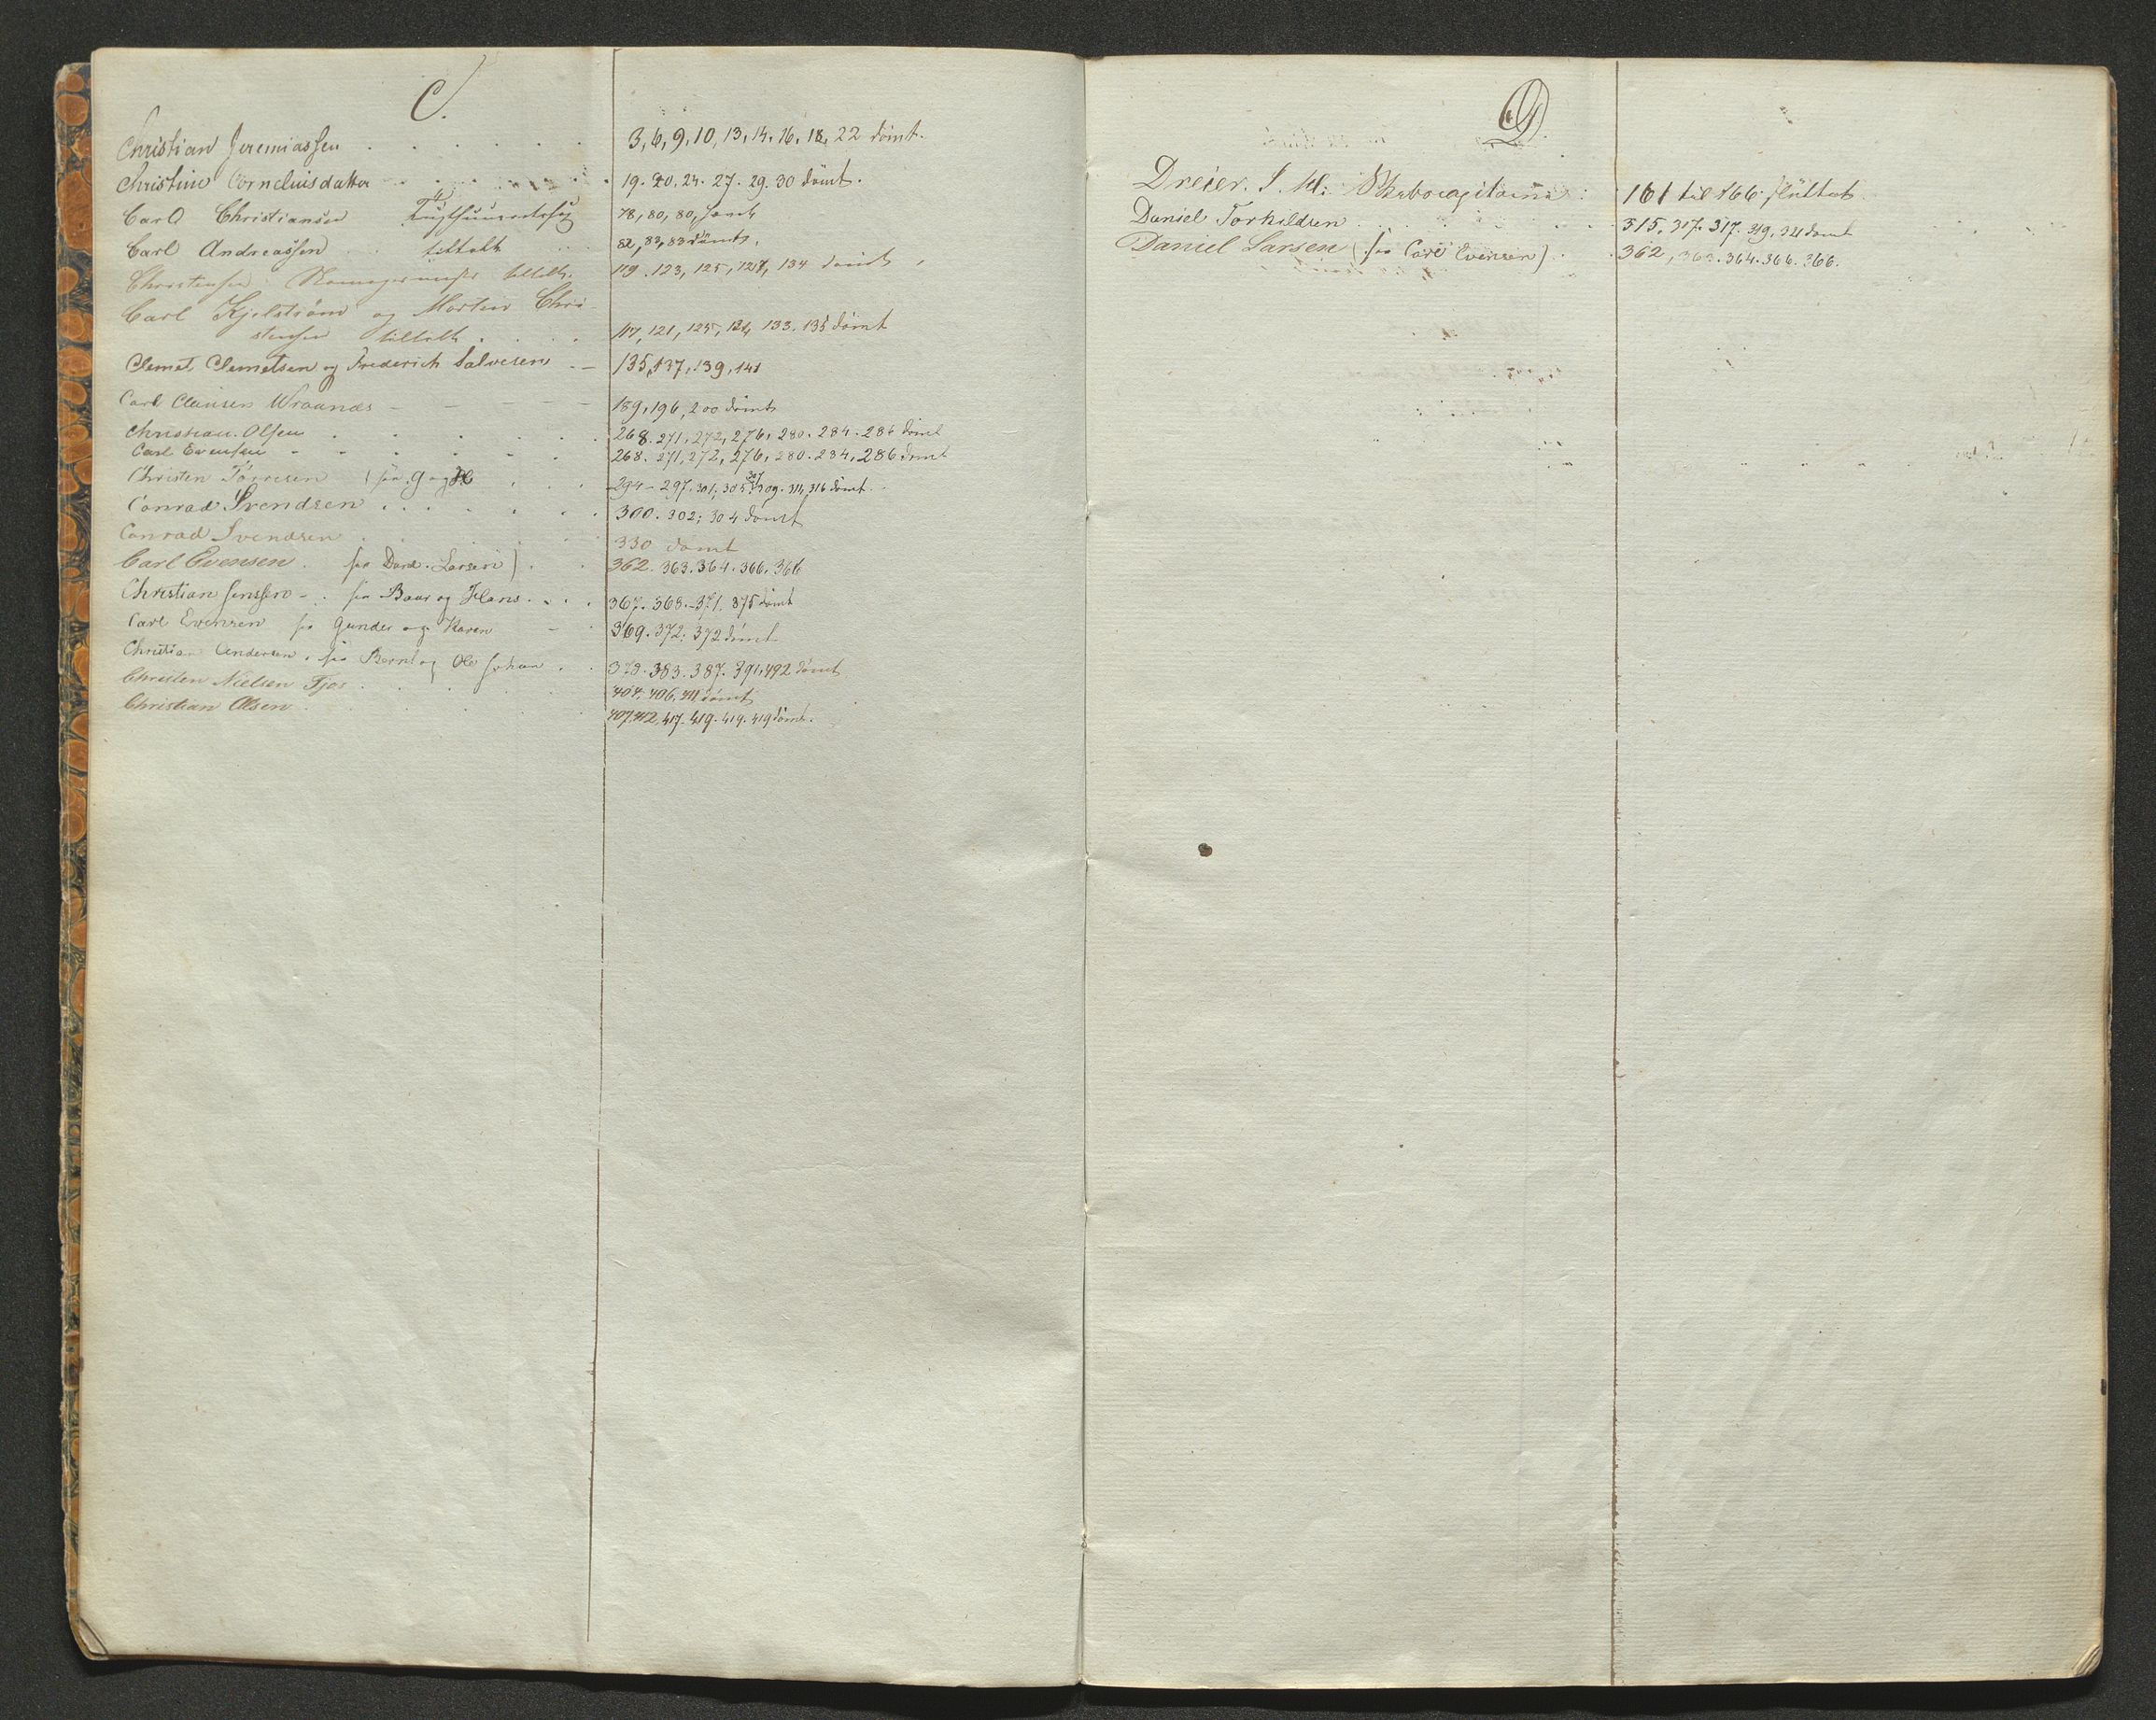 C.
Christian Jeremiassen . . . . . . 3, 6, 9, 10, 13, 14. 16. 18, 22 dömt.
Christine Corneliusdatter . . . . . . 19. 20. 24. 27. 29. 30 dömt.
Carl Christiansen 78, 80, 80,
Carl Andreassen tiltalt 82, 83, 83 dömt.
Christensen tiltalt. 119. 123, 125, 127, 134 dömt
Carl Kjelstrøm og Morten Chri-
stensen tiltalt . . . . 117, 121, 125, 133. 135 dömt
Clemet Clemetsen og Frederich Salvesen - - 135, 137, 139, 141
Carl Clausen Wraanes - - - - 189, 196, 200 dömt
Christian Olsen . . . . . . 268. 271, 272, 276, 280. 284. 286 dömt
Carl Evensen - - - - - . 268. 271, 272, 276, 280. 284. 286 dömt
Christen Törresen . . . 294 - 297. 301, 305, 307, 309. 311, 316 dömt.
Conrad Svendsen . . . . . . 300. 302; 304 dömt
Conrad Svendsen . . . . . 330 dömt
Carl Evensen. Larsen) . . 362. 363. 364. 366. 366
Christian Jenssen - . og Hans . . . . 367. 368. - 371. 375 dömt
Carl Evensen Gunder og Karen - . 369. 372; 372 dömt
Christian Andersen. Bernt og Ole Johan . . 379. 383. 387. 391, 492 dömt
Christen Nielsen Fjos . . . . . 404. 406, 411 dömt
Christian Olsen . . . . . 407. 412, 417. 419. 419. 419 dömt.
D.
Dreier. J. M: : 161 til 166 flüttet.
Daniel Torkildsen . . . . . . . 315. 317. 317. 319. 321 dömt
Daniel Larsen ( Carl Evensen) . . 362, 363. 364. 366. 366.